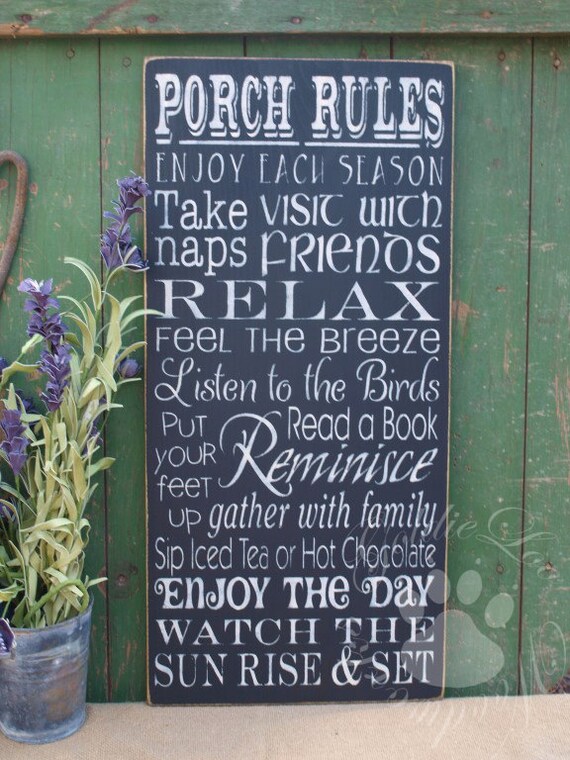 PORCH RULES
ENJOY EACH SEASON
Take naps
VISIT WITH FRIENDS
RELAX
FEEL THE BREEZE
Listen to the Birds
PUT YOUR feet UP
Read a Book
Reminisce
gather with family
Sip Iced Tea or Hot Chocolate
ENJOY THE DAY
WATCH THE
SUN RISE & SET